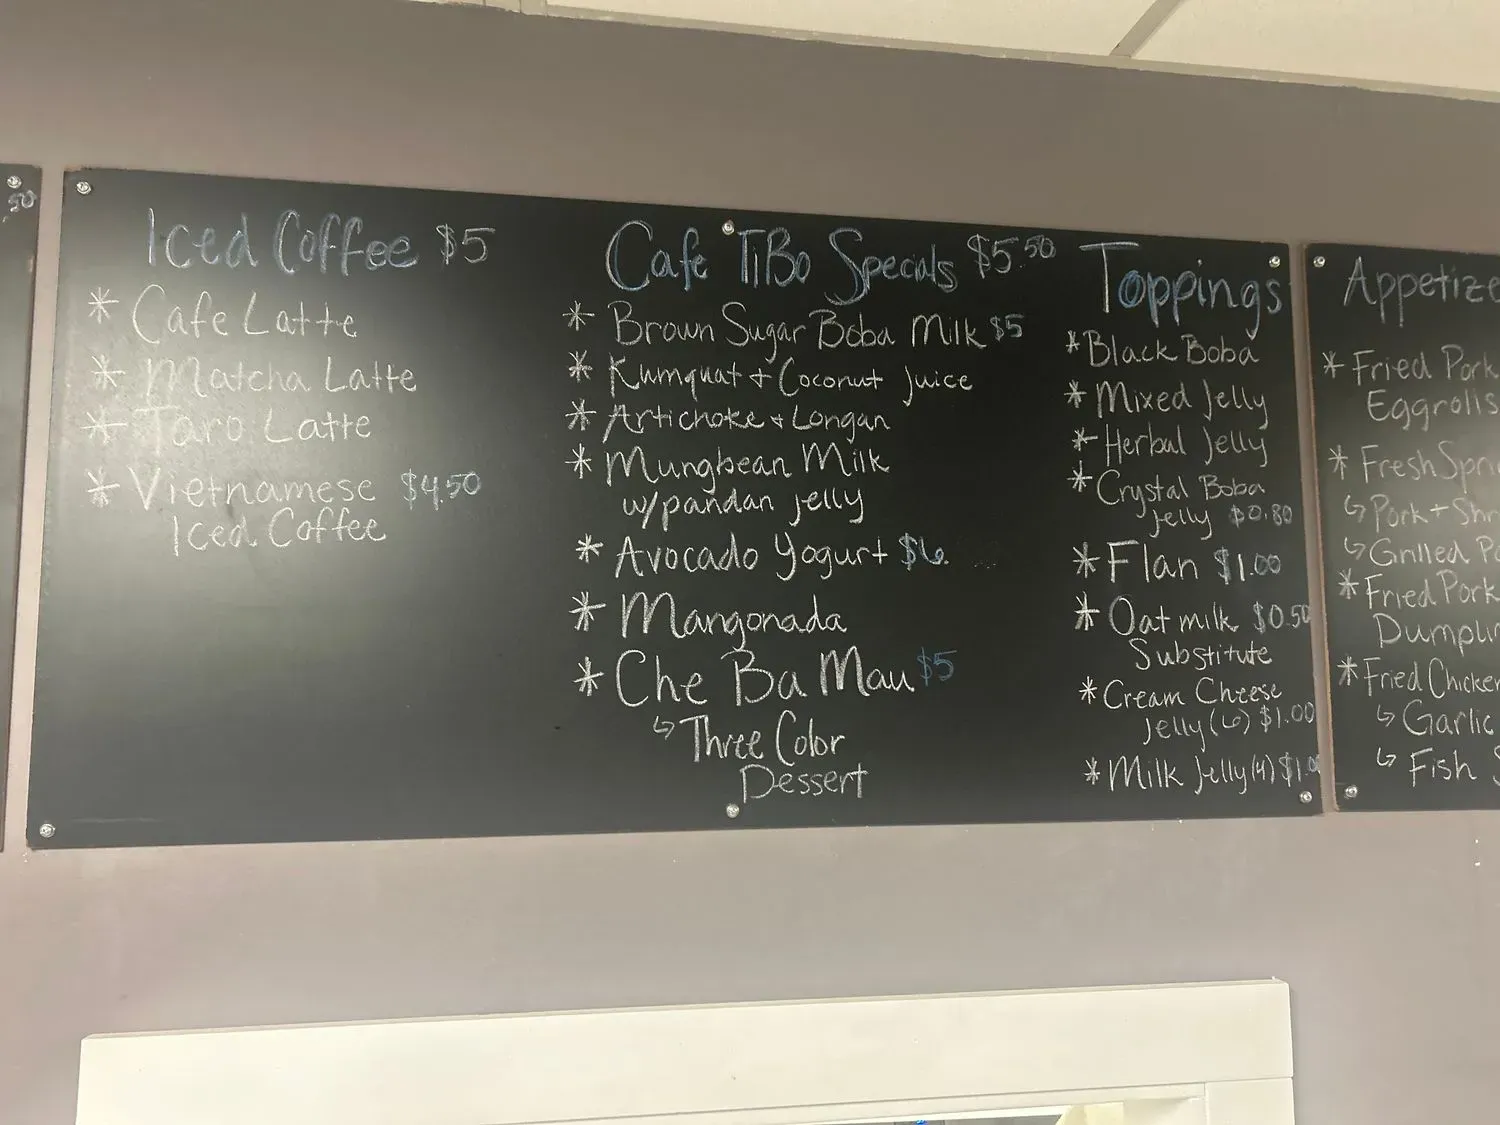 .50
Iced Coffee $5
* Cafe Latte
* Matcha Latte
* Taro Latte
* Vietnamese $4.50
Iced Coffee
Cafe TiBo Specials $5.50
* Brown Sugar Boba Milk $5
* Kumquat + Coconut Juice
* Artichoke + Longan
* Mungbean Milk
w/pandan jelly
* Avocado Yogurt $6
* Mangonada
* Che Ba Mau $5
↳ Three Color
Dessert
Toppings
* Black Boba
* Mixed Jelly
* Herbal Jelly
* Crystal Boba
Jelly $0.80
* Flan $1.00
* Oat milk $0.50
Substitute
* Cream Cheese
Jelly (6) $1.00
* Milk Jelly (4) $1.0
Appetize
* Fried Pork
Eggrolls
* Fresh Spri
↳ Pork + Shr
↳ Grilled Po
* Fried Pork
Dumplin
* Fried Chicken
↳ Garlic
↳ Fish S